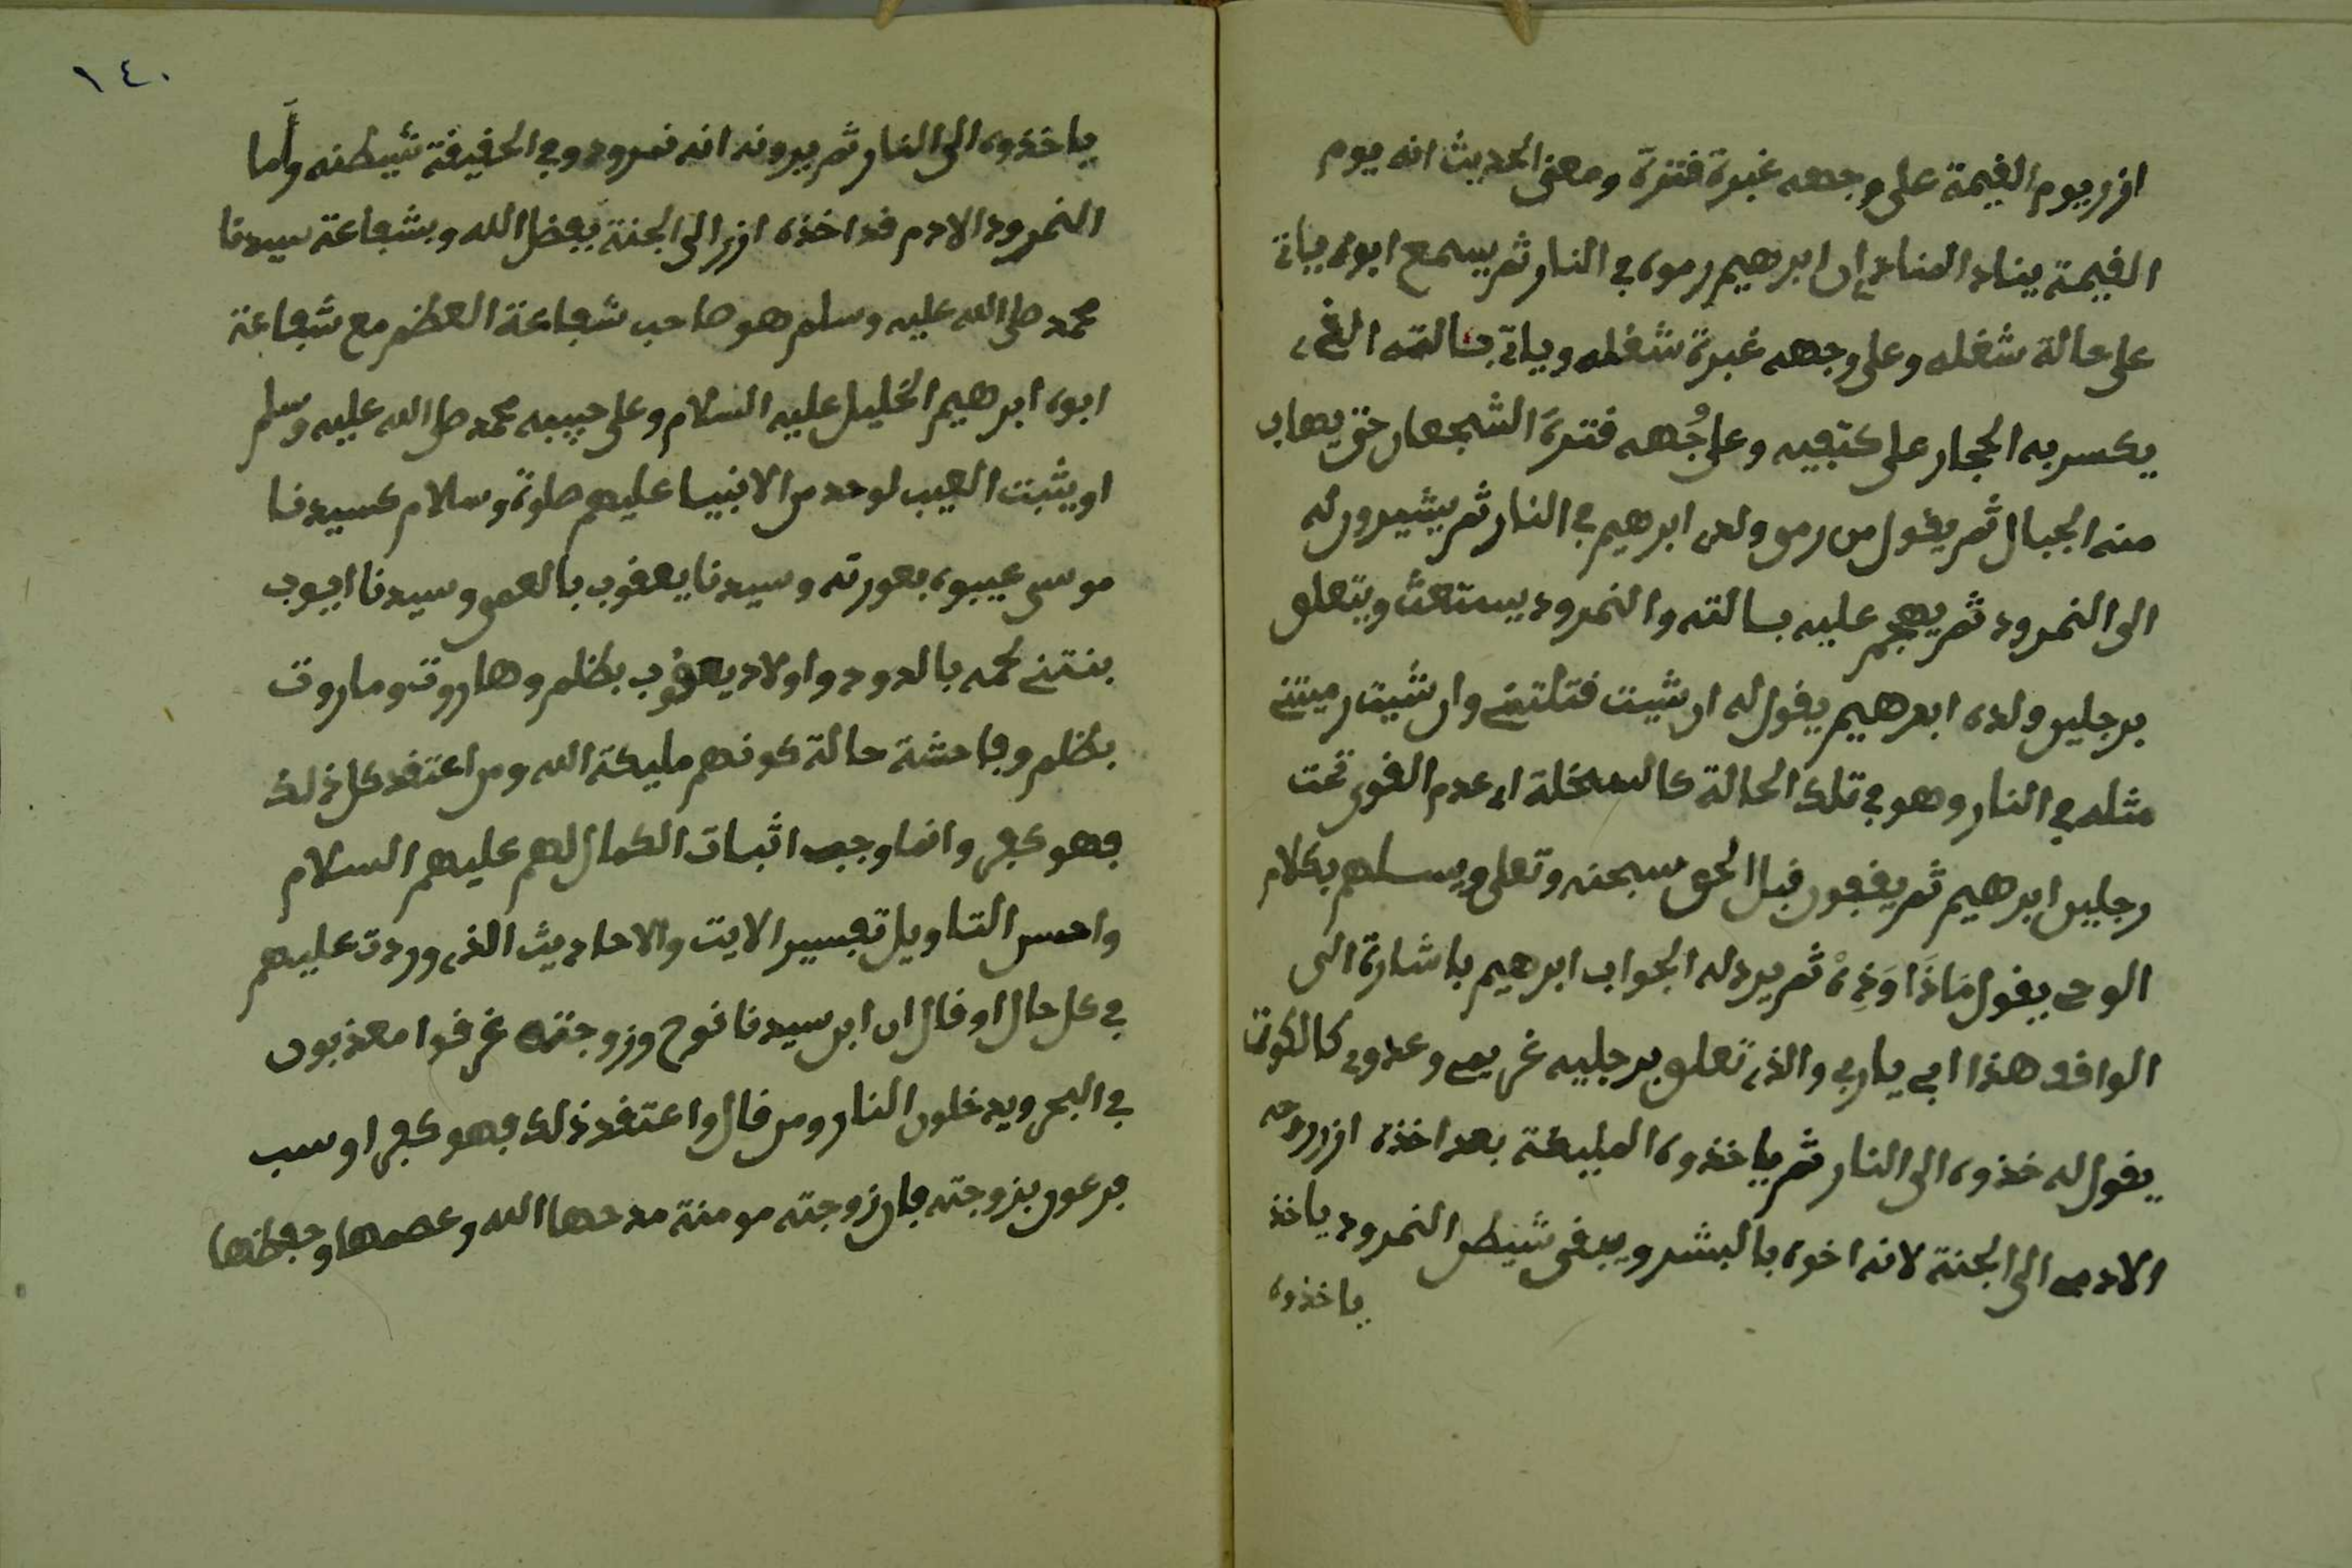 ازر يوم القيمة على وجهه غبرة قترة ومعنى الحديث انه يوم
القيمة يناد المنادي ان ابرهيم رموه في النار ثم يسمع ابوه ياتي
على حالة شغله وعلى وجهه غبرة شغله وياتي بسالته الذي
يكسر به الحجار على كتفيه وعلى وُجهه قترة الشجعان حتى يهاب
منه الجبال ثم يقول من رمى ولدي ابرهيم في النار ثم يشيرون له
الى النمرود ثم يهجم عليه بسالته والنمرود يستغث ويتعلق
برجلين ولده ابرهيم يقول له ان شيت قتلتني وان شيت رميتني
مثله في النار وهو في تلك الحالة كالسخلة اي عدم القوى تحت
رجلين ابرهيم ثم يقفون قبل الحق سبحنه وتعلى ويسلهم بكلام
الوحي يقول مَاذَا وَذِهْ ثم يرد له الجواب ابرهيم باشارة الى
الواقف هذا ابي يا ربي والذي تعلق برجليه غريمي وعدوي كالكوت
يقول له خذوه الى النار ثم ياخذوه المليكة بعد اخذه ازر روحه
الادمي الى الجنة لانه اخوه بالبشر ويبقى شيطن النمرود ياخذ
ياخذوه
١٤٠
ياخذوه الى النار ثم يرونه انه نمرود وفي الحقيقة شيطنه وأما
النمرود الادم قد اخذه ازر الى الجنة بفضل الله وبشفاعة سيدنا
محمد صلى الله عليه وسلم هو صاحب شفاعة العظم مع شفاعة
ابوه ابرهيم الخليل عليه السلام وعلى حبيبه محمد صلى الله عليه وسلم
او يثبت العيب لوحد من الانبيا عليهم صلوة وسلام كسيدنا
موسى عيبوه بعورته وسيدنا يعقوب بالعمى وسيدنا ايوب
بنتني لحمه بالدود واولاد يعقوب بظلم وهاروت وماروت
بظلم وفاحشة حالة كونهم مليكة الله ومن اعتقد كل ذلك
فهو كفر وانما وجب اثبات الكمال لهم عليهم السلام
واحسن التاويل تفسير الايت والاحاديث الذي وردت عليهم
في كل حال او قال ان ابن سيدنا نوح وزوجته غرقوا معذبون
في البحر ويدخلون النار ومن قال واعتقد ذلك فهو كفر او سب
فرعون بزوجته فان زوجته مومنة مدحها الله وعصمها وحفظها